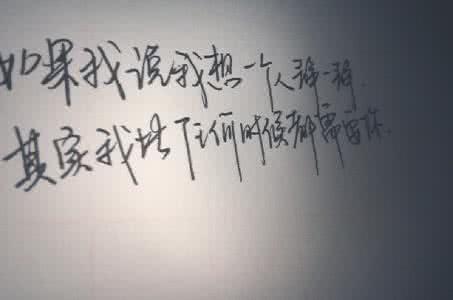 如果我说我想一个人静一静.
其实我比任何时候都需要你.